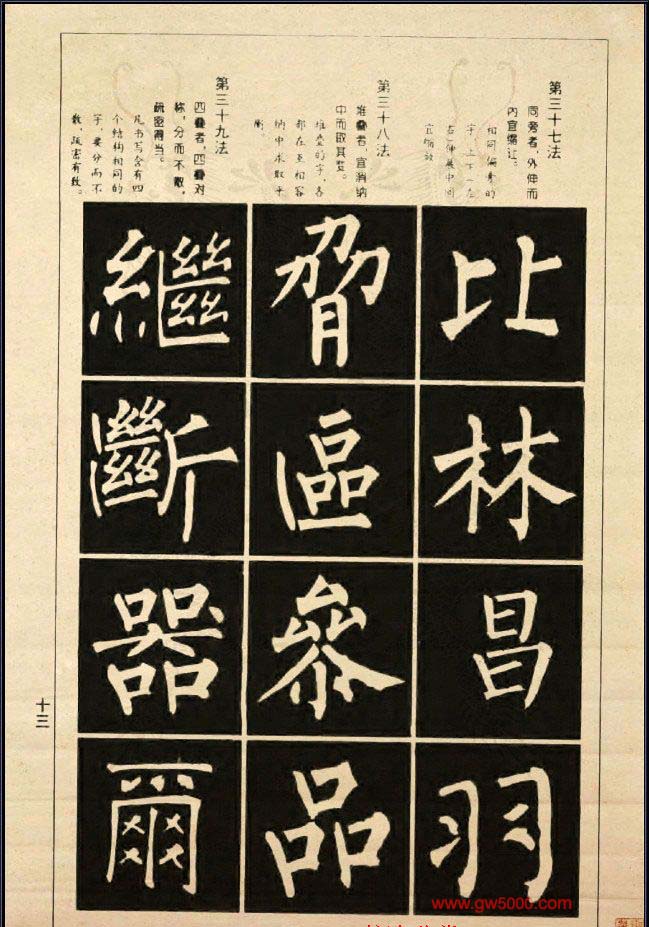 第三十七法
同旁者，外伸而
内宜缩让。
相同偏旁的
字，上下一左
右伸展中间
宜缩敛
比
林
昌
羽
第三十八法
堆叠者，宜消纳
中而取其
堆叠的字，各
部在互相容
纳中求取平
衡。
脅
區
參
品
第三十九法
四叠者，四叠对
称，分而不散，
疏密得当。
凡书写含有四
个结构相同的
字，要分而不
散，疏密有致。
繼
斷
器
爾
十三
www.gw5000.com